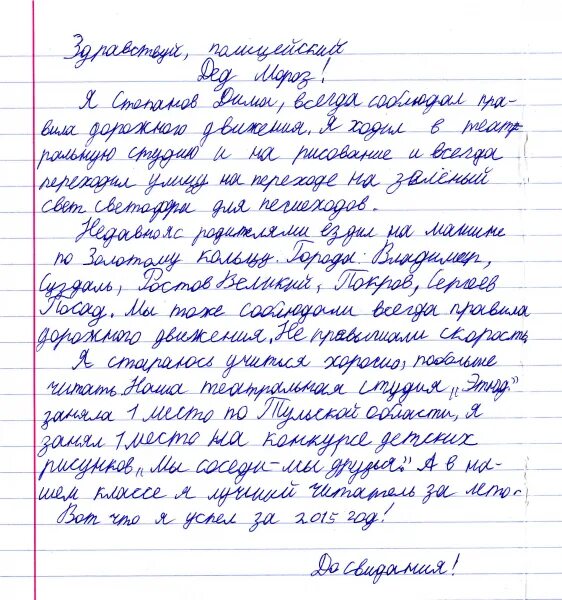 Здравствуй, полицейский
Дед Мороз!
Я Степанов Дима, всегда соблюдал пра-
вила дорожного движения. Я ходил в театр
ральную студию и на рисование и всегда
переходил улицу на переходе на зелёный
свет светофра для пешеходов.
Недавно я с родителями ездил на машине
по Золотому кольцу. Города: Владимир,
Суздаль, Ростов Великий, Покров, Сергеев
Посад. Мы тоже соблюдали всегда правила
дорожного движения. Не превышали скорость
Я стараюсь учиться хорошо, побольше
читать. Наша театральная студия „Этюд"
заняла 1 место по Тульской области, я
занял 1 место на конкурсе детских
рисунков „Мы соседи-мы друзья". А в на-
шем классе я лучший читатель за лето.
Вот что я успел за 2015 год!
До свидания!